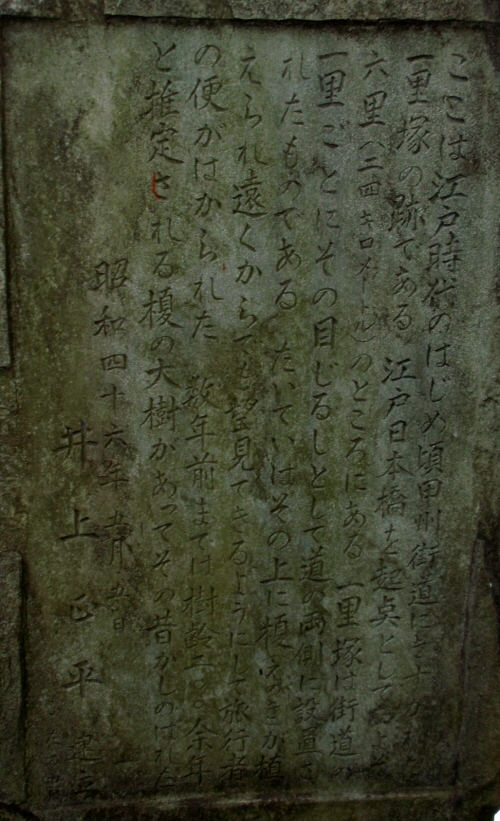 ここは江戸時代のはじめ頃甲州街道に
一里塚の跡である 江戸日本橋を起点として
六里(二四キロメートル)のところにある 一里塚は街道の
一里ごとにその目じるしとして道の両側に設置さ
れたものである たいていはその上に榎が植
えられ遠くからでも望見できるようにして旅行者
の便がはかられた 数年前までは樹齢二〇〇余年
と推定される榎の大樹があってその昔がしのばれた
昭和四十六年
井上 平 建立